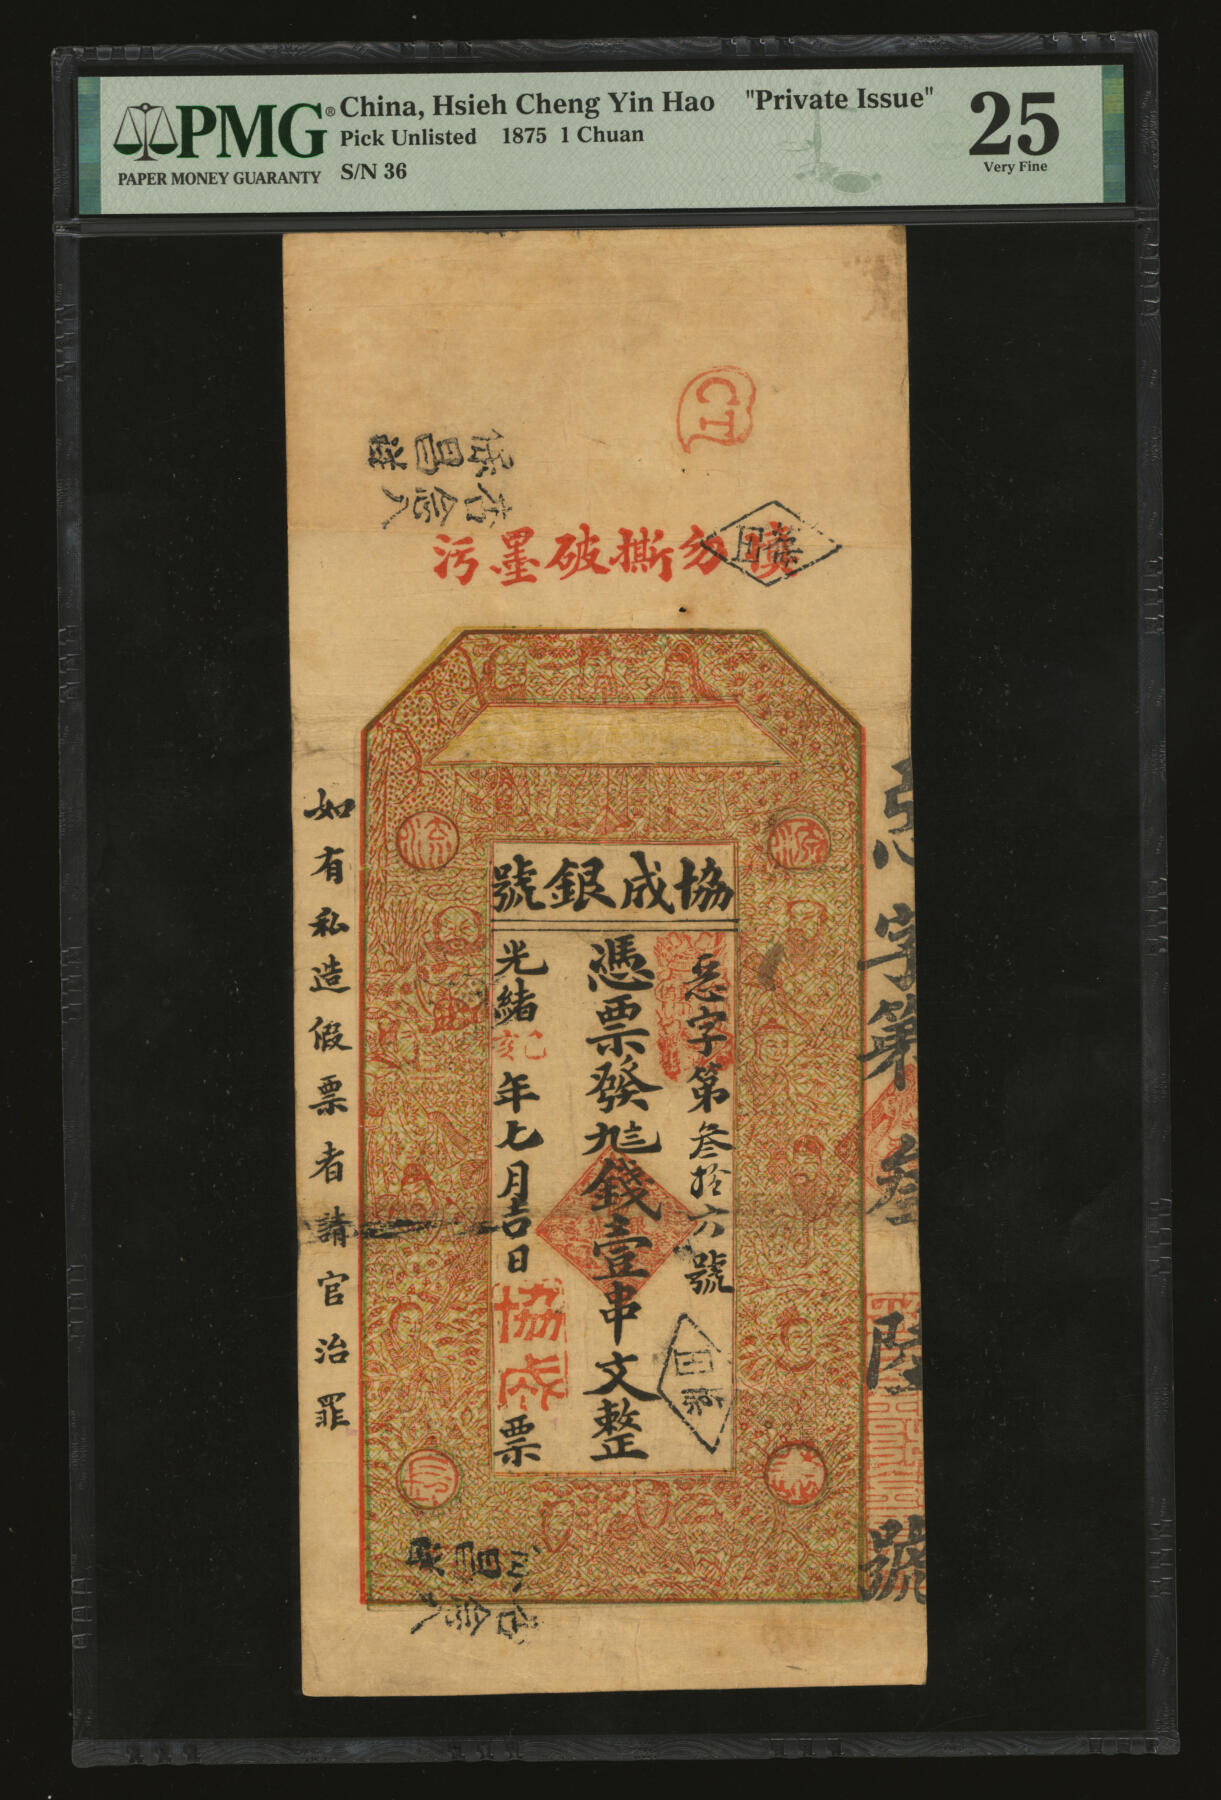 PMG®
PAPER MONEY GUARANTY
China, Hsieh Cheng Yin Hao "Private Issue"
Pick Unlisted 1875 1 Chuan
S/N 36
25
Very Fine
CT
勿撕破墨污
源
流
協成銀號
惡字第叁拾六號
憑票發九三錢壹串文整
光緒己亥年七月吉日
協成
票
如有私造假票者請官治罪
字第叁陸號